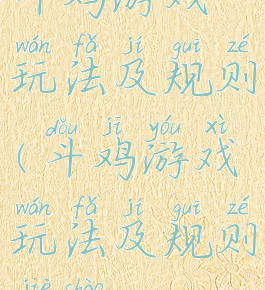 斗鸡游戏
wán fǎ jí guī zé
玩法及规则
dòu jī yóu xì
(斗鸡游戏
wán fǎ jí guī zé
玩法及规则
jiè shào